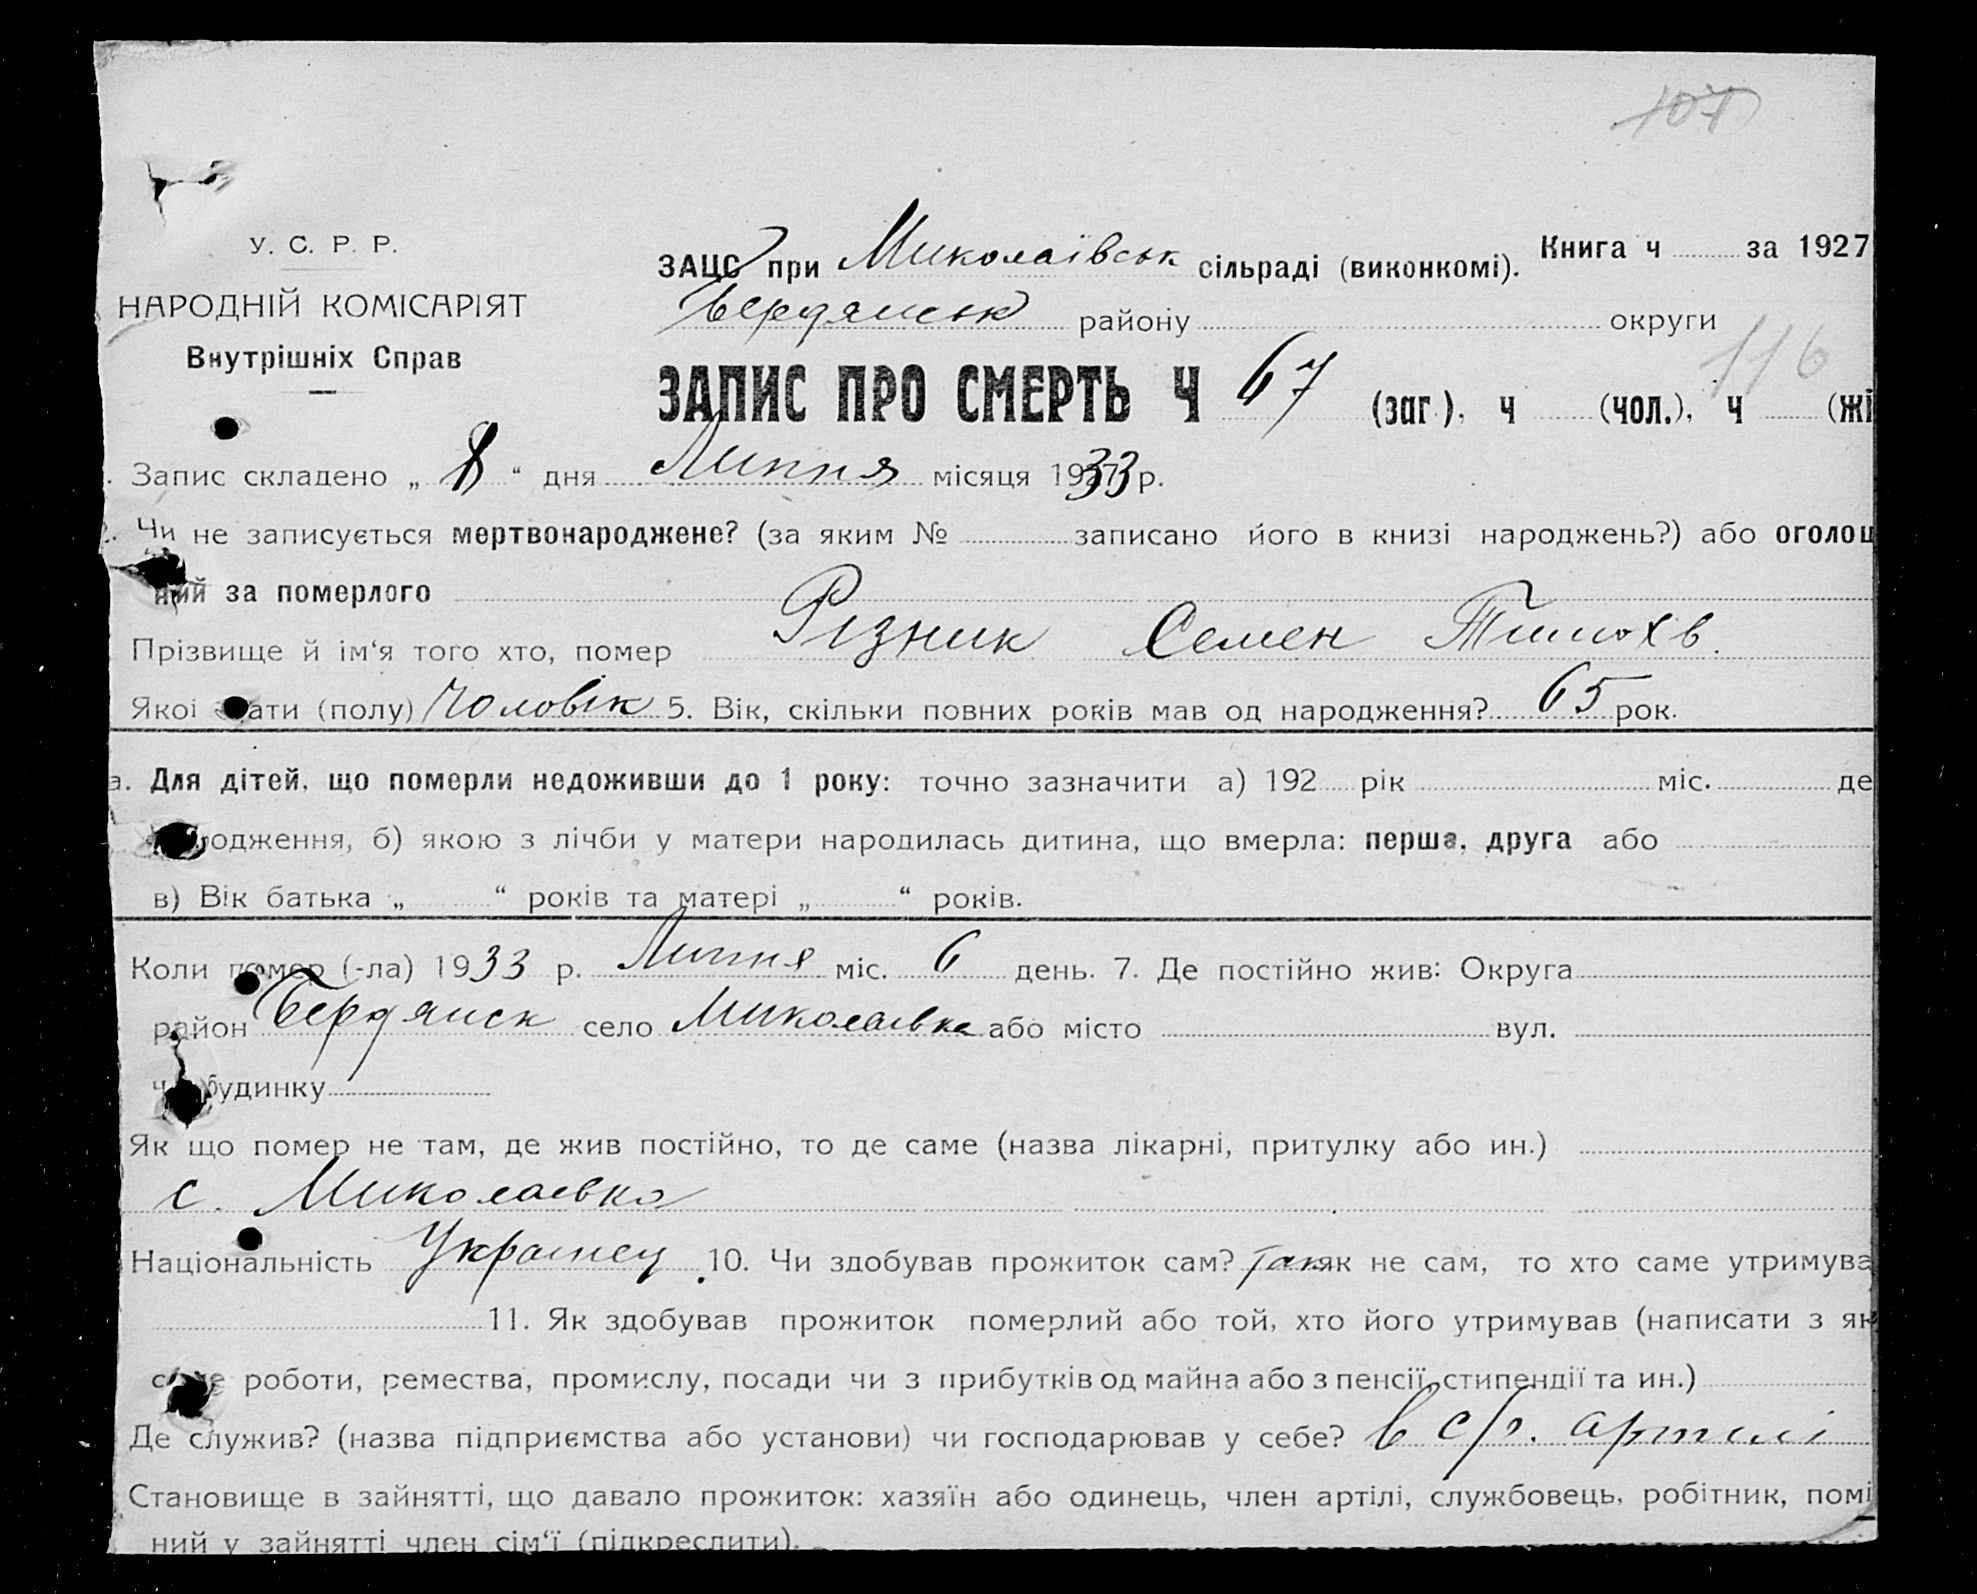 107
У. С. Р. Р.
НАРОДНІЙ КОМІСАРІЯТ
Внутрішніх Справ
ЗАЦС при Миколаївськ сільраді (виконкомі). Книга ч за 1927
Бердянськ району округи
116
ЗАПИС ПРО СМЕРТЬ Ч 67 (заг.), ч (чол.), ч (жі
Запис складено „ 8 “ дня Липня місяця 1933 р.
Чи не записується мертвонароджене? (за яким № записано його в книзі народжень?) або оголош
ний за померлого
Прізвище й ім‘я того хто, помер Різник Семен Тимохв.
Якої стати (полу) Чоловік 5. Вік, скільки повних років мав од народження? 65 рок.
а. Для дітей, що померли недоживши до 1 року: точно зазначити а) 192 рік міс. де
родження, б) якою з лічби у матери народилась дитина, що вмерла: перша, друга або
в) Вік батька „ “ років та матері „ “ років.
Коли помер (-ла) 1933 р. Липня міс. 6 день. 7. Де постійно жив: Округа
район Бердянск село Миколаевка або місто вул.
ч. будинку
Як що помер не там, де жив постійно, то де саме (назва лікарні, притулку або ин.)
с. Миколаевка
Національність Украинец 10. Чи здобував прожиток сам? Так як не сам, то хто саме утримува
11. Як здобував прожиток померлий або той, хто його утримував (написати з як
саме роботи, ремества, промислу, посади чи з прибутків од майна або з пенсії, стипендії та ин.)
Де служив? (назва підприємства або установи) чи господарював у себе? в с/г. артилі
Становище в зайнятті, що давало прожиток: хазяїн або одинець, член артілі, службовець, робітник, помі
ний у зайнятті член сім‘ї (підкреслити).